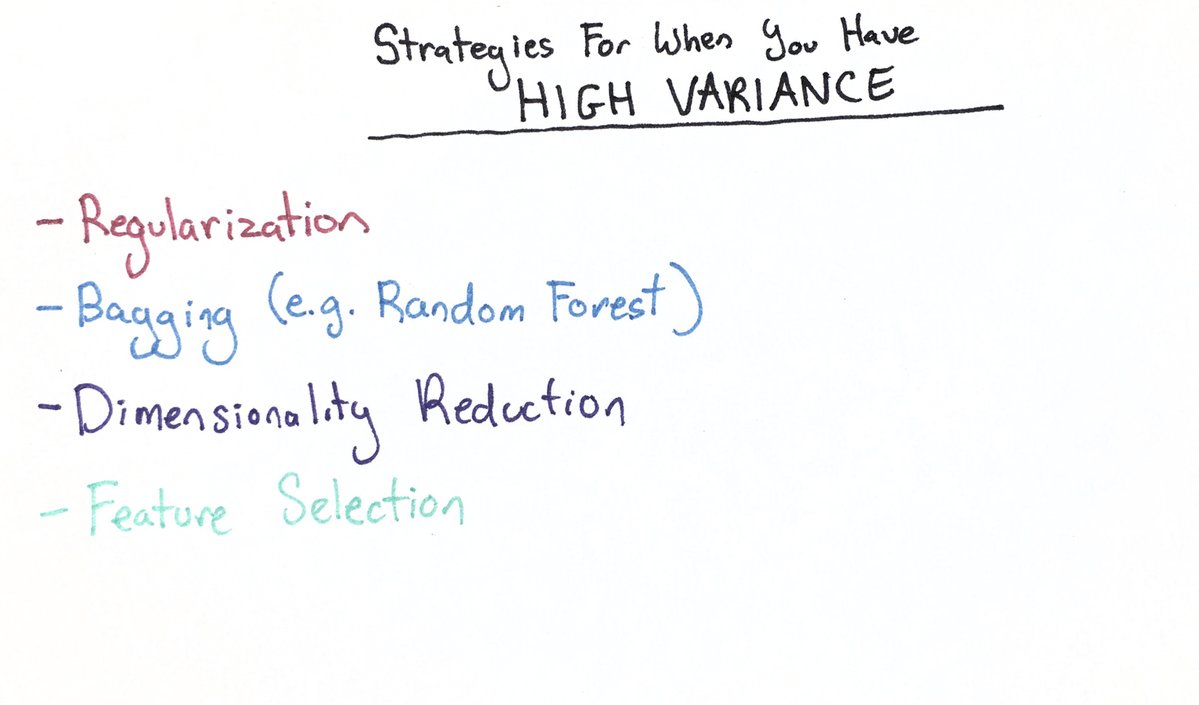 Strategies For When You Have
HIGH VARIANCE
- Regularization
- Bagging (e.g. Random Forest)
- Dimensionality Reduction
- Feature Selection